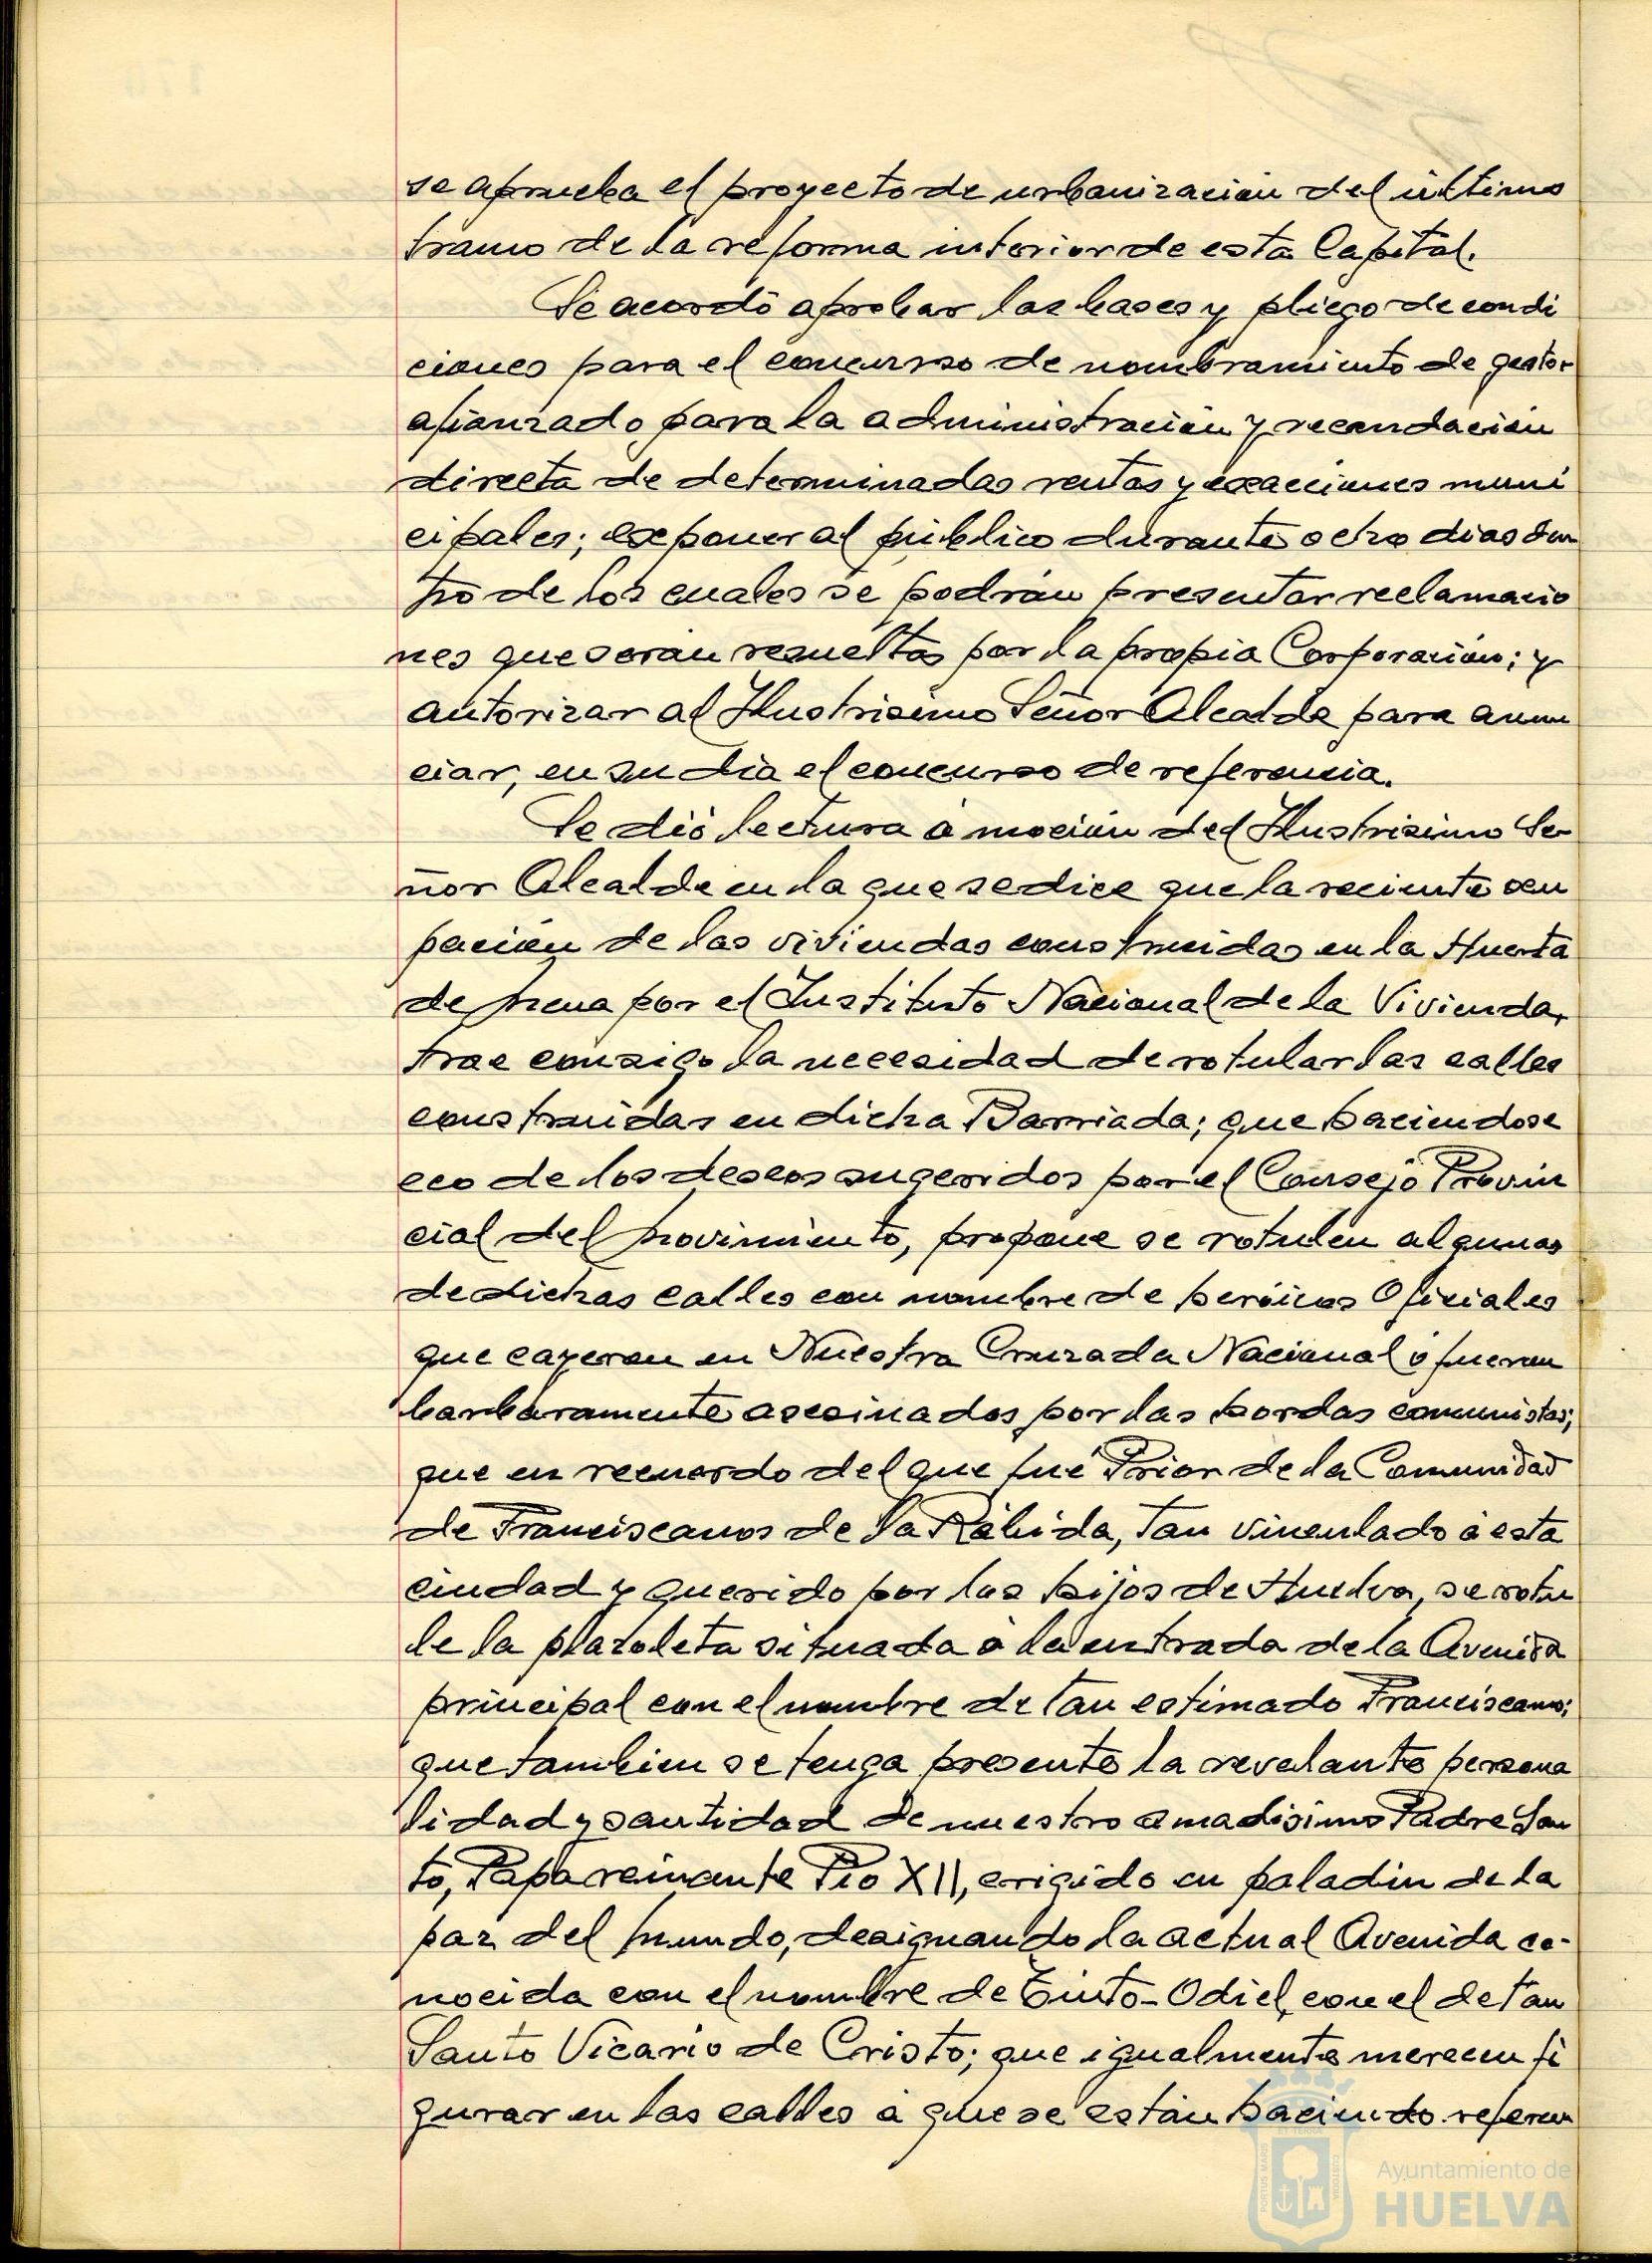 se aprueba el proyecto de urbanización del último
tramo de la reforma interior de esta Capital.
Se acordó aprobar las bases y pliego de condi
ciones para el concurso de nombramiento de gestor
afianzado para la administración y recaudación
directa de determinadas rentas y exacciones muni
cipales; exponer al público durante ocho dias den
tro de los cuales se podrán presentar reclamacio
nes que serán resueltas por la propia Corporación; y
autorizar al Ilustrisimo Señor Alcalde para anun
ciar, en su dia el concurso de referencia.
Se dió lectura á moción del Ilustrisimo Se-
ñor Alcalde en la que se dice que la reciente ocu
pación de las viviendas construidas en la Huerta
de Mena por el Instituto Nacional de la Vivienda,
trae consigo la necesidad de rotular las calles
construidas en dicha Barriada; que haciendose
eco de los deseos sugeridos por el Consejo Provin
cial del Movimiento, propone se rotulen algunas
de dichas calles con nombre de heróicos Oficiales
que cayeron en Nuestra Cruzada Nacional ó fueron
barbaramente asesinados por las hordas comunistas;
que en recuerdo del que fué Prior de la Comunidad
de Franciscanos de la Rábida, tan vinculado á esta
ciudad y querido por los hijos de Huelva, se rotu
le la plazoleta situada á la entrada de la Avenida
principal con el nombre de tan estimado Franciscano;
que tambien se tenga presente la revelante persona
lidad y santidad de nuestro amadisimo Padre San
to, Papa reinante Pio XII, erigido en paladin de la
paz del Mundo, designando la actual Avenida co-
nocida con el nombre de Tinto-Odiel, con el de tan
Santo Vicario de Cristo; que igualmente merecen fi
gurar en las calles á que se están haciendo referen
Ayuntamiento de
HUELVA